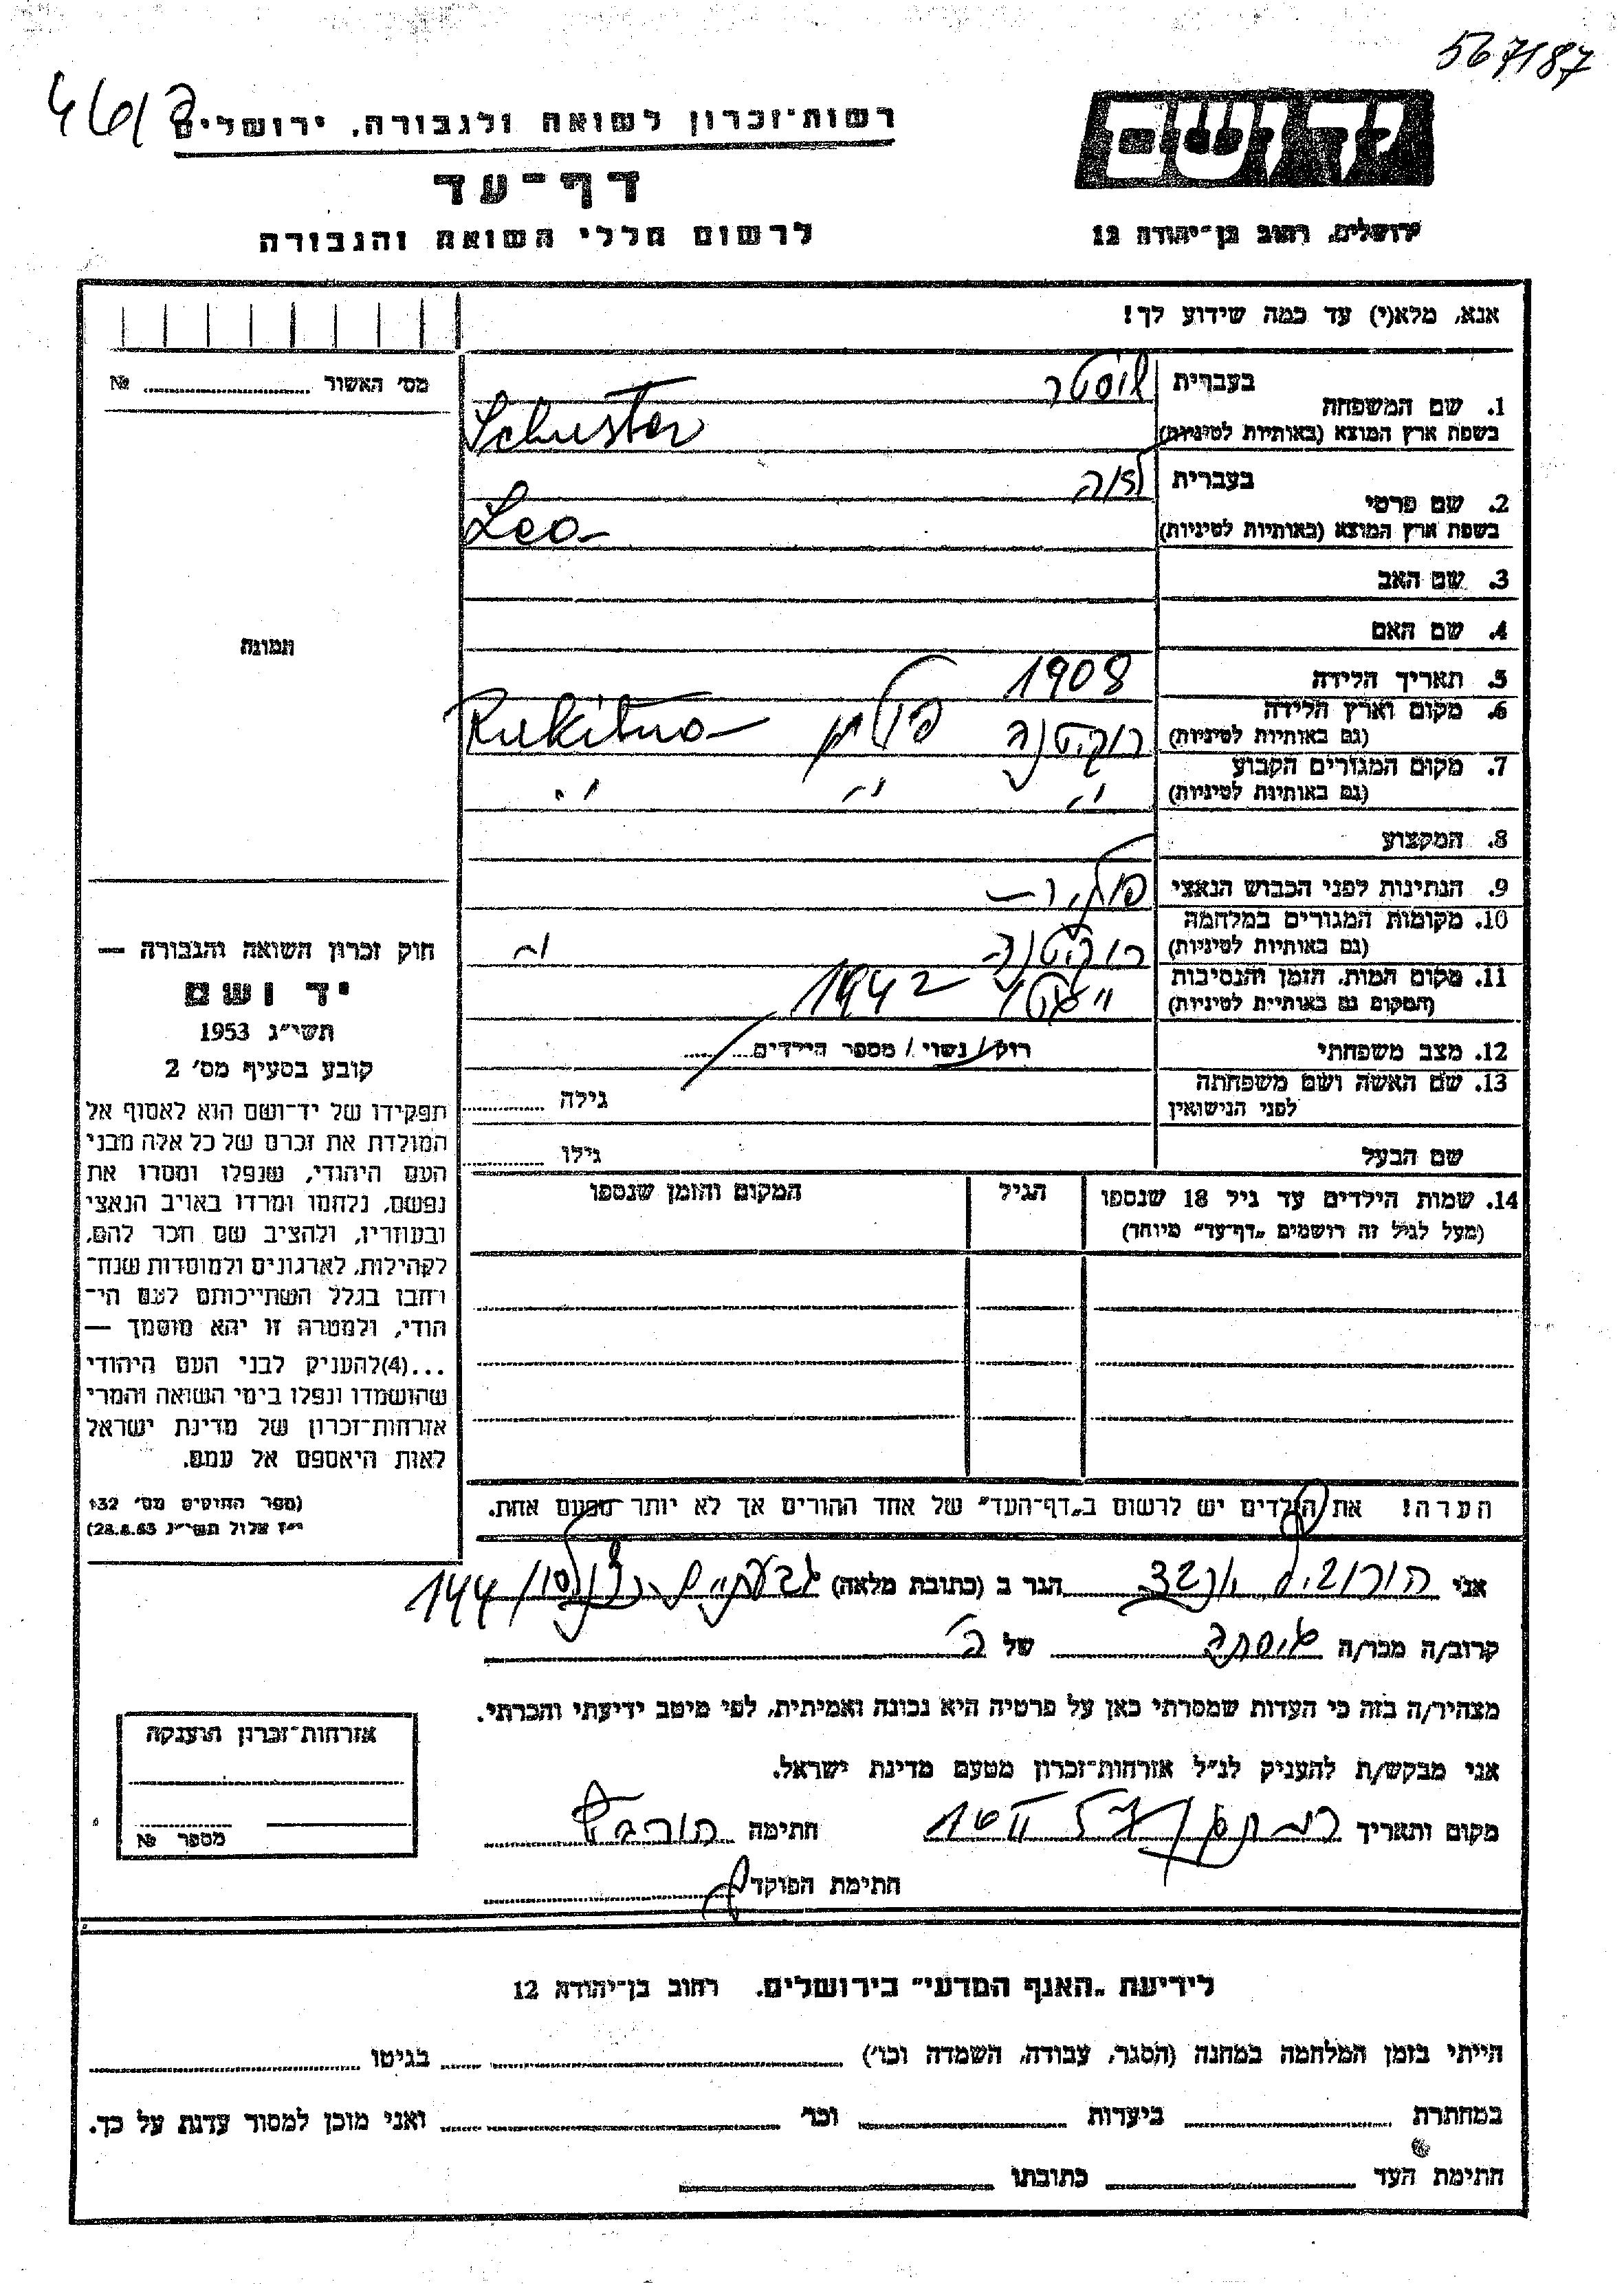 567187
רשות־זכרון לשואה ולגבורה, ירושלים
דף־עד
לרשום חללי השואה והגבורה
ירושלים, רחוב בן־יהודה 12
אנא, מלא(י) עד כמה שידוע לך!
מס' האשור № 
1. שם המשפחה
בעברית שוסטר
בשפת ארץ המוצא (באותיות לטיניות) Schuster
2. שם פרטי
בעברית
בשפת ארץ המוצא (באותיות לטיניות) Leo
3. שם האב
4. שם האם
תמונה
5. תאריך הלידה 1908
6. מקום וארץ הלידה
(גם באותיות לטיניות) רוקיטנה פולין Rukitno
7. מקום המגורים הקבוע
(גם באותיות לטיניות) " " "
8. המקצוע
9. הנתינות לפני הכבוש הנאצי פולנית
10. מקומות המגורים במלחמה
(גם באותיות לטיניות) רוקיטנה "
11. מקום המות, הזמן והנסיבות
(המקום גם באותיות לטיניות) 1942
12. מצב משפחתי רווק / נשוי / מספר הילדים
13. שם האשה ושם משפחתה
לפני הנישואין גילה
שם הבעל גילו
14. שמות הילדים עד גיל 18 שנספו הגיל המקום והזמן שנספו
(מעל לגיל זה רושמים „דף־עד" מיוחד)
הערה! את הילדים יש לרשום ב„דף־העד" של אחד ההורים אך לא יותר מפעם אחת.
חוק זכרון השואה והגבורה —
יד ושם
תשי"ג 1953
קובע בסעיף מס' 2
תפקידו של יד־ושם הוא לאסוף אל
המולדת את זכרם של כל אלה מבני
העם היהודי, שנפלו ומסרו את
נפשם, נלחמו ומרדו באויב הנאצי
ובעוזריו, ולהציב שם וזכר להם,
לקהילות, לארגונים ולמוסדות שנח־
רחבו בגלל השתייכותם לעם הי־
הודי, ולמטרה זו יהא מוסמך —
...(4)להעניק לבני העם היהודי
שהושמדו ונפלו בימי השואה והמרי
אזרחות־זכרון של מדינת ישראל
לאות היאספם אל עמם.
(ספר החוקים מס' 132
י"ז אלול תשי"ג 28.8.53)
אני הורוביץ הגר ב (כתובת מלאה) גבעתיים 144
קרוב/ה מכר/ה של
מצהיר/ה בזה כי העדות שמסרתי כאן על פרטיה היא נכונה ואמיתית, לפי מיטב ידיעתי והכרתי.
אני מבקש/ת להעניק לנ"ל אזרחות־זכרון מטעם מדינת ישראל.
מקום ותאריך חתימה
חתימת הפוקד
אזרחות־זכרון הוענקה
מספר №
לידיעת „האגף המדעי" בירושלים. רחוב בן־יהודה 12
הייתי בזמן המלחמה במחנה (הסגר, עבודה, השמדה וכו') בגיטו
במחתרת ביערות וכו' ואני מוכן למסור עדות על כך.
חתימת העד כתובתו